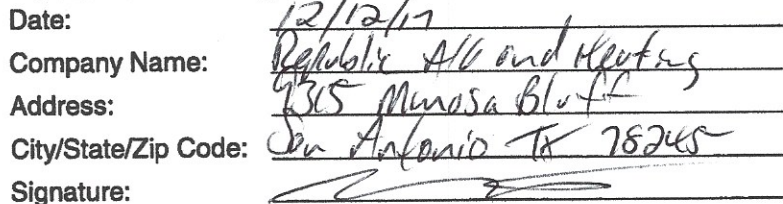 Date: 12/12/17
Company Name: Republic A/C and Heating
Address: Mimosa Bluff
City/State/Zip Code: San Antonio TX 78245
Signature: